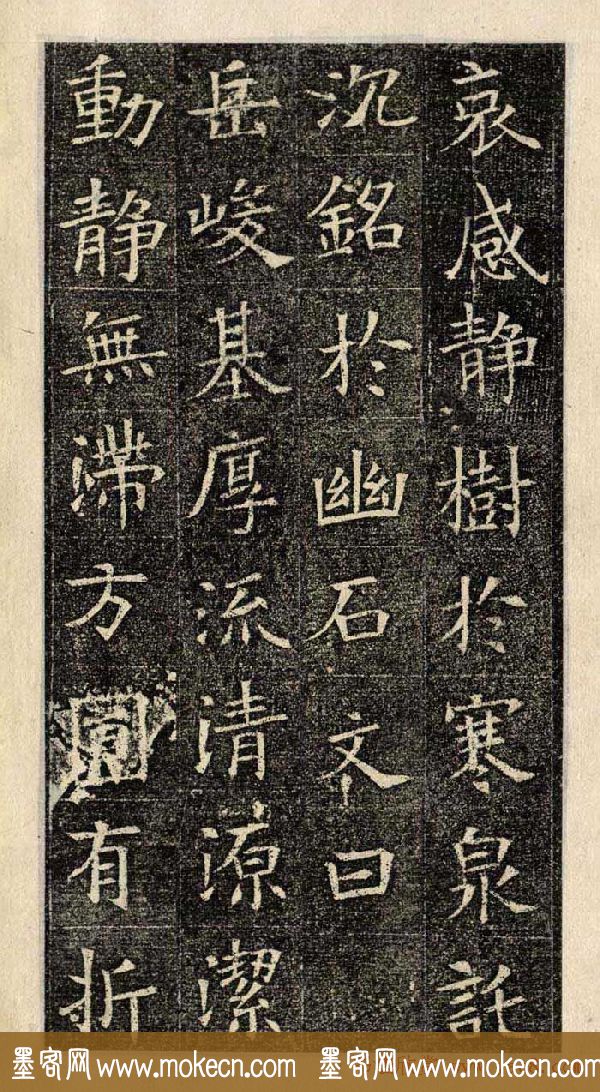 哀感静樹於寒泉託
沉銘於幽石文曰
岳峻基厚流清源潔
動静無滞方圓有折
墨客网 www.mokecn.com 墨客网 www.mokecn.com